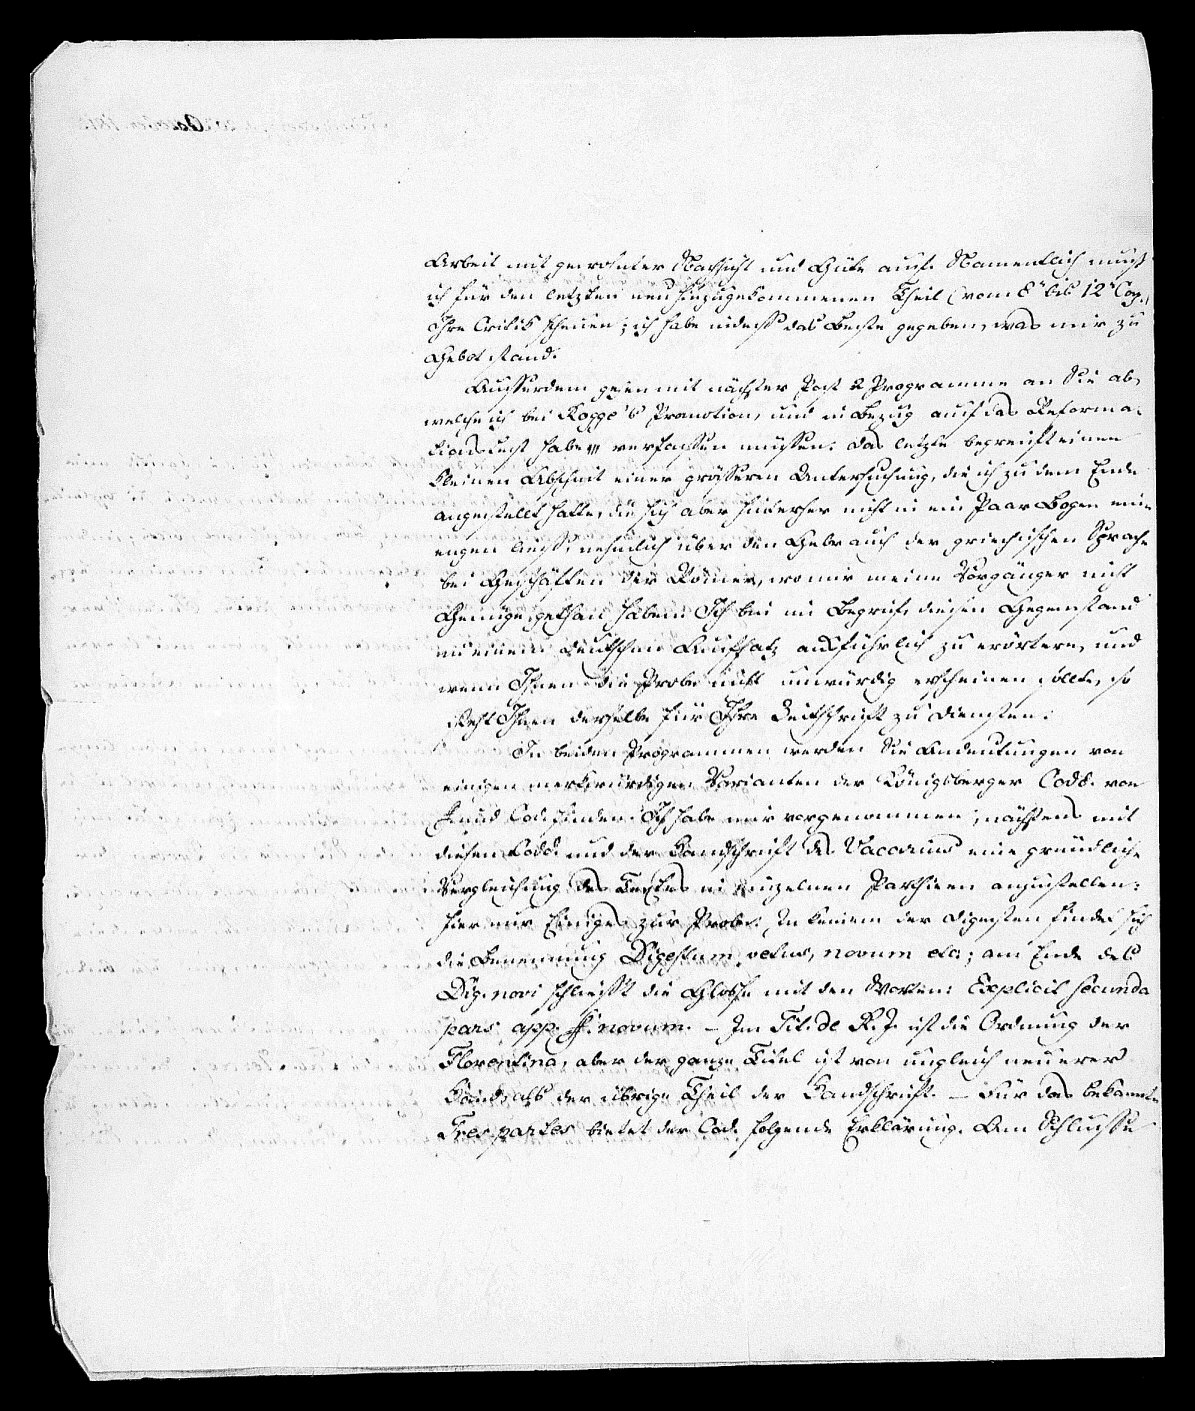 Arbeit mit gewohnter Nachsicht und Güte auf. Namentlich muß
ich für den letzten neu hinzugekommenen Theil (vom 8n bis 12n Cap.)
Ihre Critik scheuen; ich habe indeß das Beste gegeben, was mir zu
Gebot stand.
Ausserdem gehen mit nächster Post 2 Programme an Sie ab,
welche ich bei Koppe's Promotion, und in Bezug auf das Reforma-
tionsfest habe verfassen müssen. Das letzte begreift einen
kleinen Abschnitt einer grösseren Untersuchung, die ich zu dem Ende
angestellt hatte, die sich aber hinterher nicht in ein Paar Bogen ein-
engen liess, nehmlich über den Gebrauch der griechischen Sprache
bei Geschäften der Römer, wo mir meine Vorgänger nicht
Genüge gethan haben. Ich bin im Begriff, diesen Gegenstand
in einem deutschen Aufsatz ausführlich zu erörtern, und
wenn Ihnen die Probe nicht unwürdig erscheinen sollte, so
steht Ihnen derselbe für Ihre Zeitschrift zu Diensten.
In beiden Programmen werden Sie Andeutungen von
einigen merkwürdigen Varianten der Königsberger Codd. von
ff. und Cod. finden. Ich habe mir vorgenommen, nächstens mit
diesen Codd. und der Handschrift des Vacarius eine gründliche
Vergleichung des Textes in einzelnen Parthieen anzustellen:
hier nur Einiges zur Probe. In keinem der Digesten findet sich
die Benennung Digestum vetus, novum etc; am Ende des
Dig. novi schliesst die Glosse mit den Worten: Explicit secunda
pars app. ff. novum. – Im Tit. de R. J. ist die Ordnung der
Florentina, aber der ganze Titel ist von ungleich neuerer
Hand, als der übrige Theil der Handschrift. – Für das bekannte
Tres partes bietet der Cod. folgende Erklärung. Am Schlusse